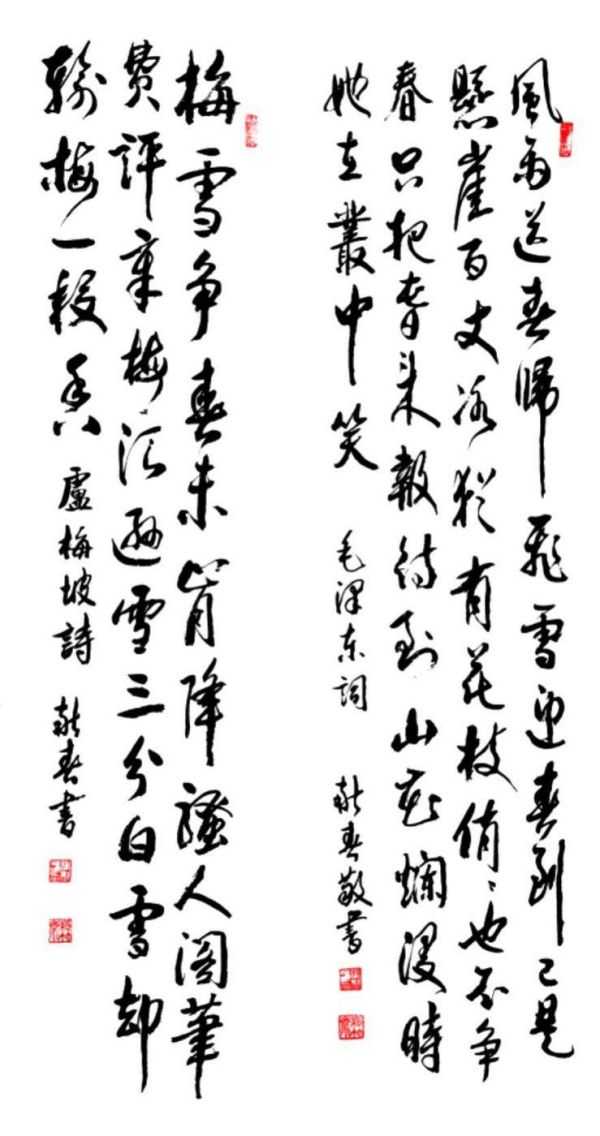 風雨送春歸飛雪迎春到已是
懸崖百丈冰猶有花枝俏、也不争
春只把春来報待到山花爛漫時
她在叢中笑 毛泽东詞 献春敬書
梅雪争春未肯降騷人阁筆
費評章梅须遜雪三分白雪却
输梅一段香 盧梅坡詩 献春書